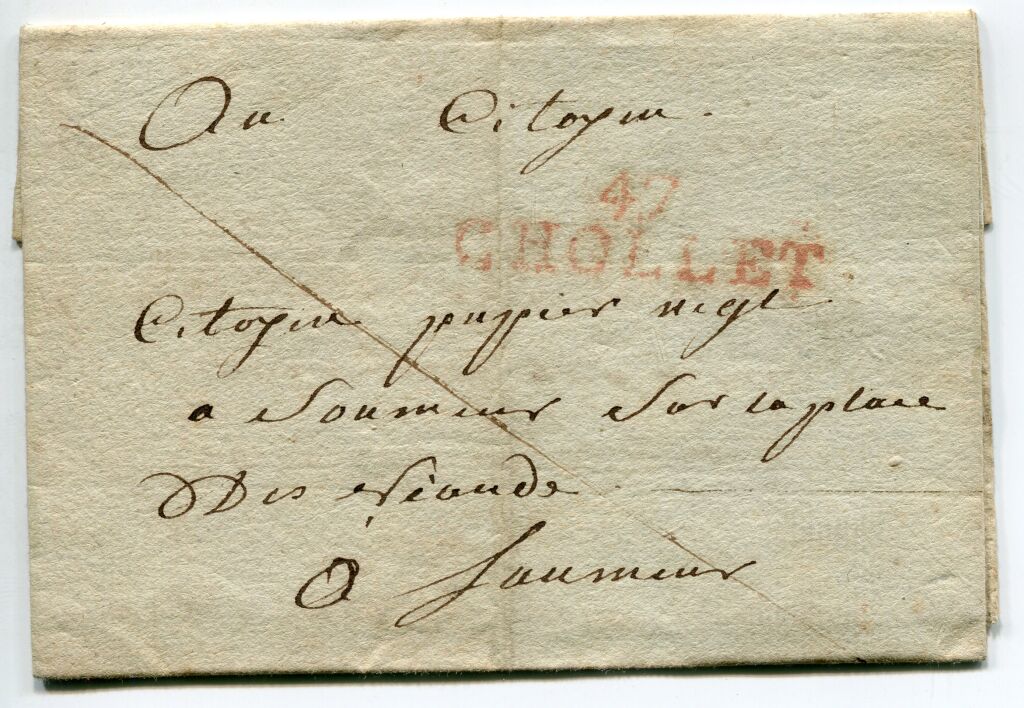 Au Citoyen
47
CHOLLET
Citoyen pupier negt
a Soumeur Sur la place
Des viande
A Saumeur